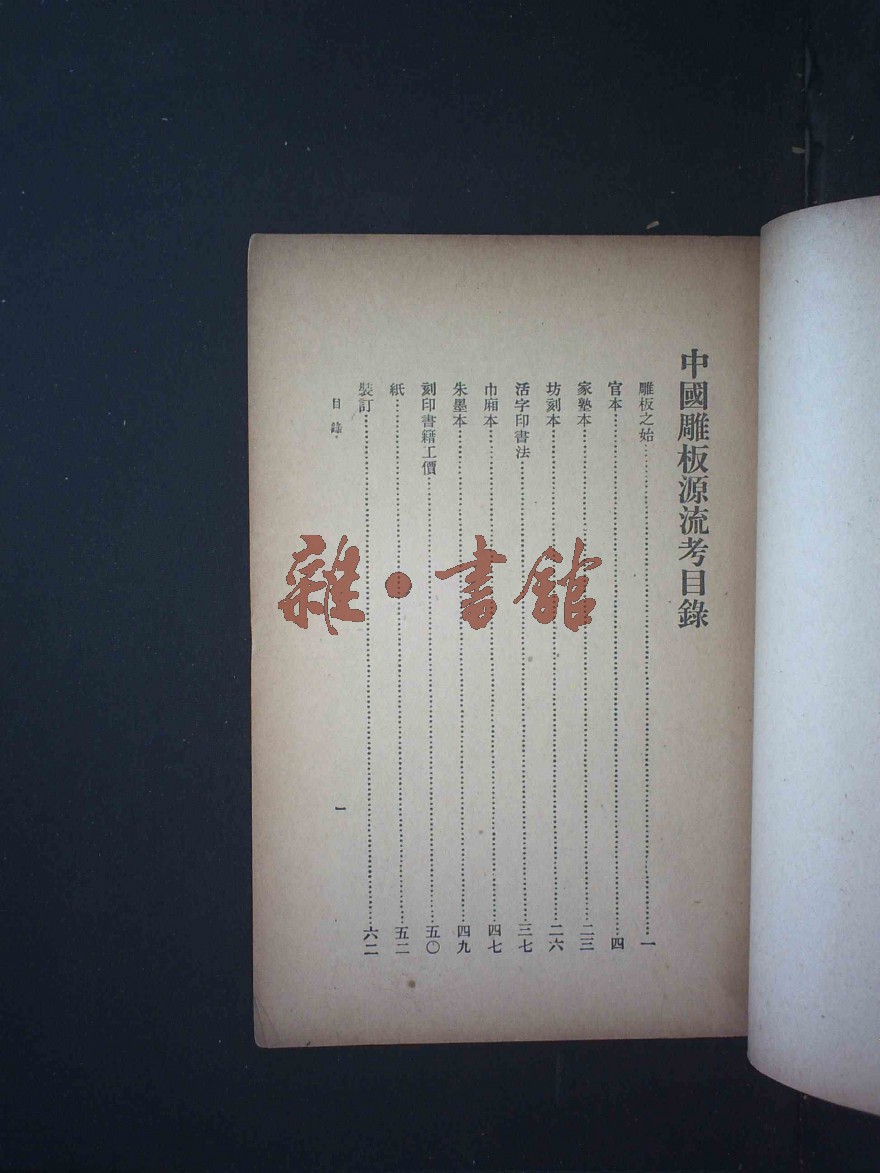 中國雕板源流考目錄
雕板之始…………一
官本…………四
家塾本…………二三
坊刻本…………二六
活字印書法…………三七
巾廂本…………四七
朱墨本…………四九
刻印書籍工價…………五〇
紙…………五二
裝訂…………六二
目錄
一
雜·書館